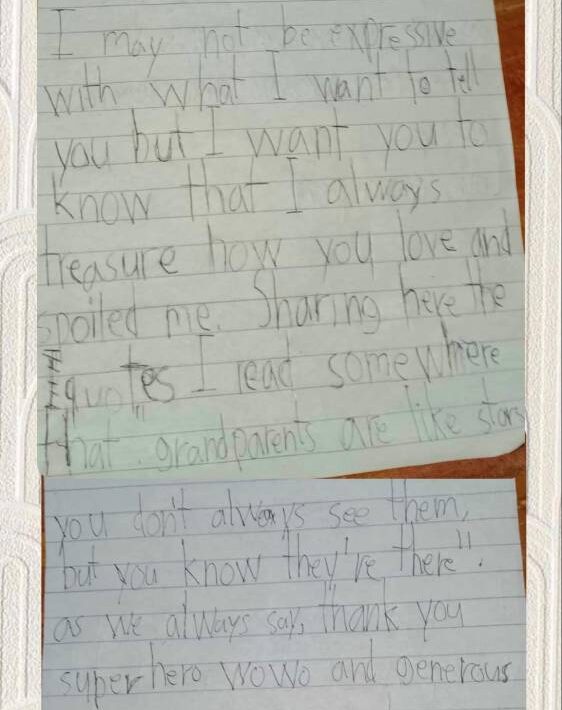 I may not be expressive
with what I want to tell
you but I want you to
know that I always
treasure how you love and
spoiled me. Sharing here the
quotes I read somewhere
that "grandparents are like stars
you don't always see them,
but you know they're there".
as we always say, thank you
superhero wowo and generous